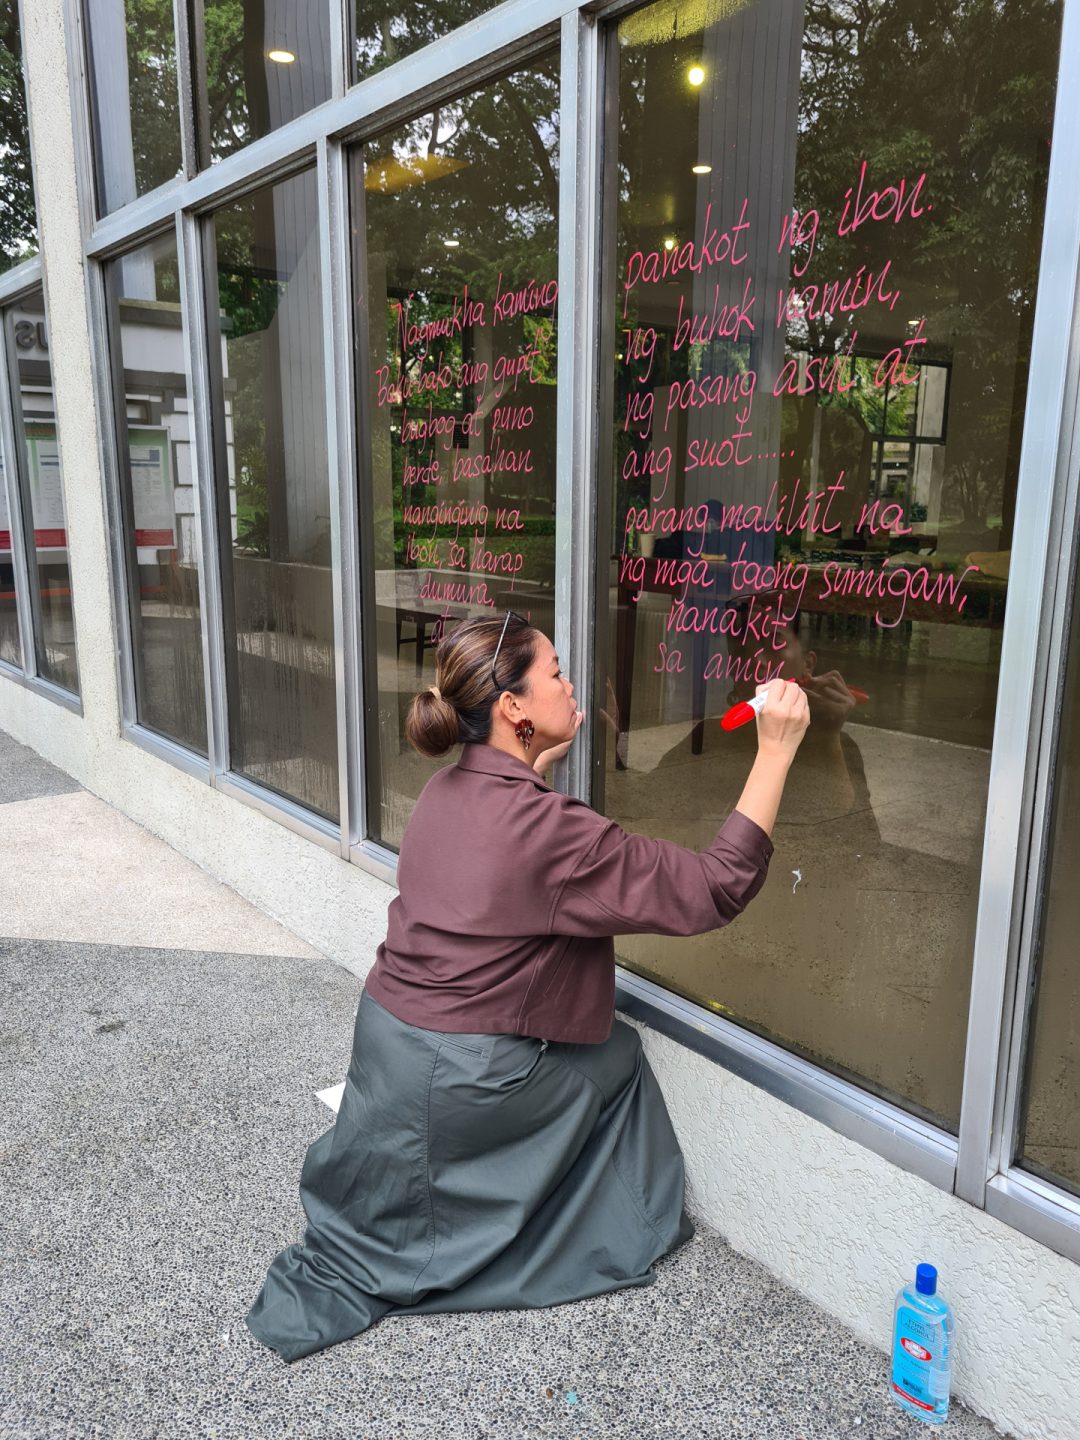 Nagmukha kaming panakot ng ibon.
Baku-bako ang gupit ng buhok namin,
bugbog at puno ng pasang asul at
berde, basahan ang suot.....
nanginginig na parang maliliit na
ibon, sa harap ng mga taong sumigaw,
dumura, nanakit
at sa amin